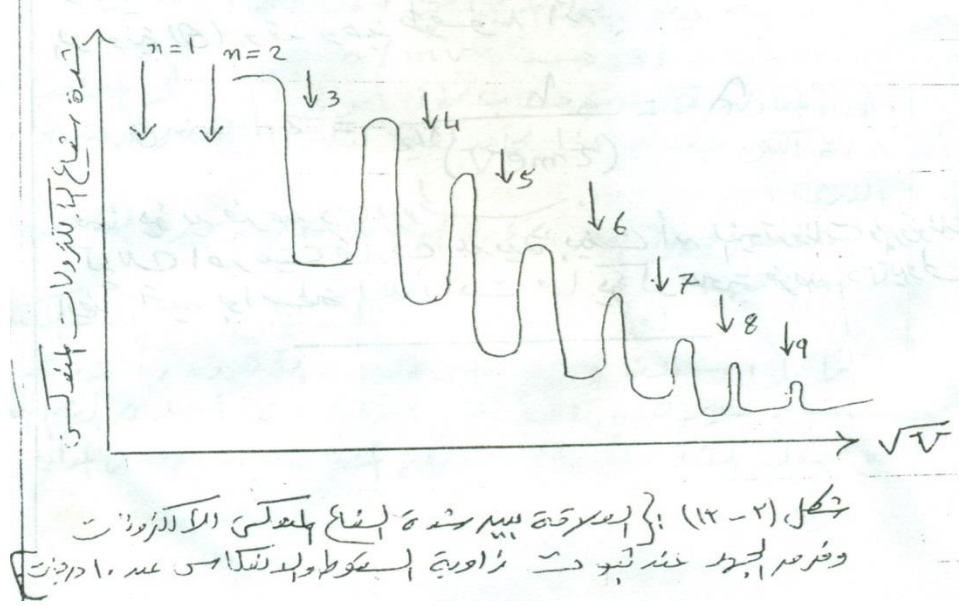 شدة شعاع الالكترونات المنعكس
n=1
n=2
3
4
5
6
7
8
9
√V
شكل (٢-١٣) : العلاقة بين شدة الشعاع المنعكس الألكترونات
وفرق الجهد عند ثبوت زاوية السقوط والانعكاس عند ١٠ درجات